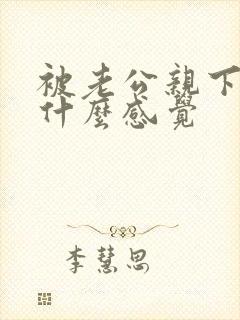 被老公親下
什麼感覺
李慧思